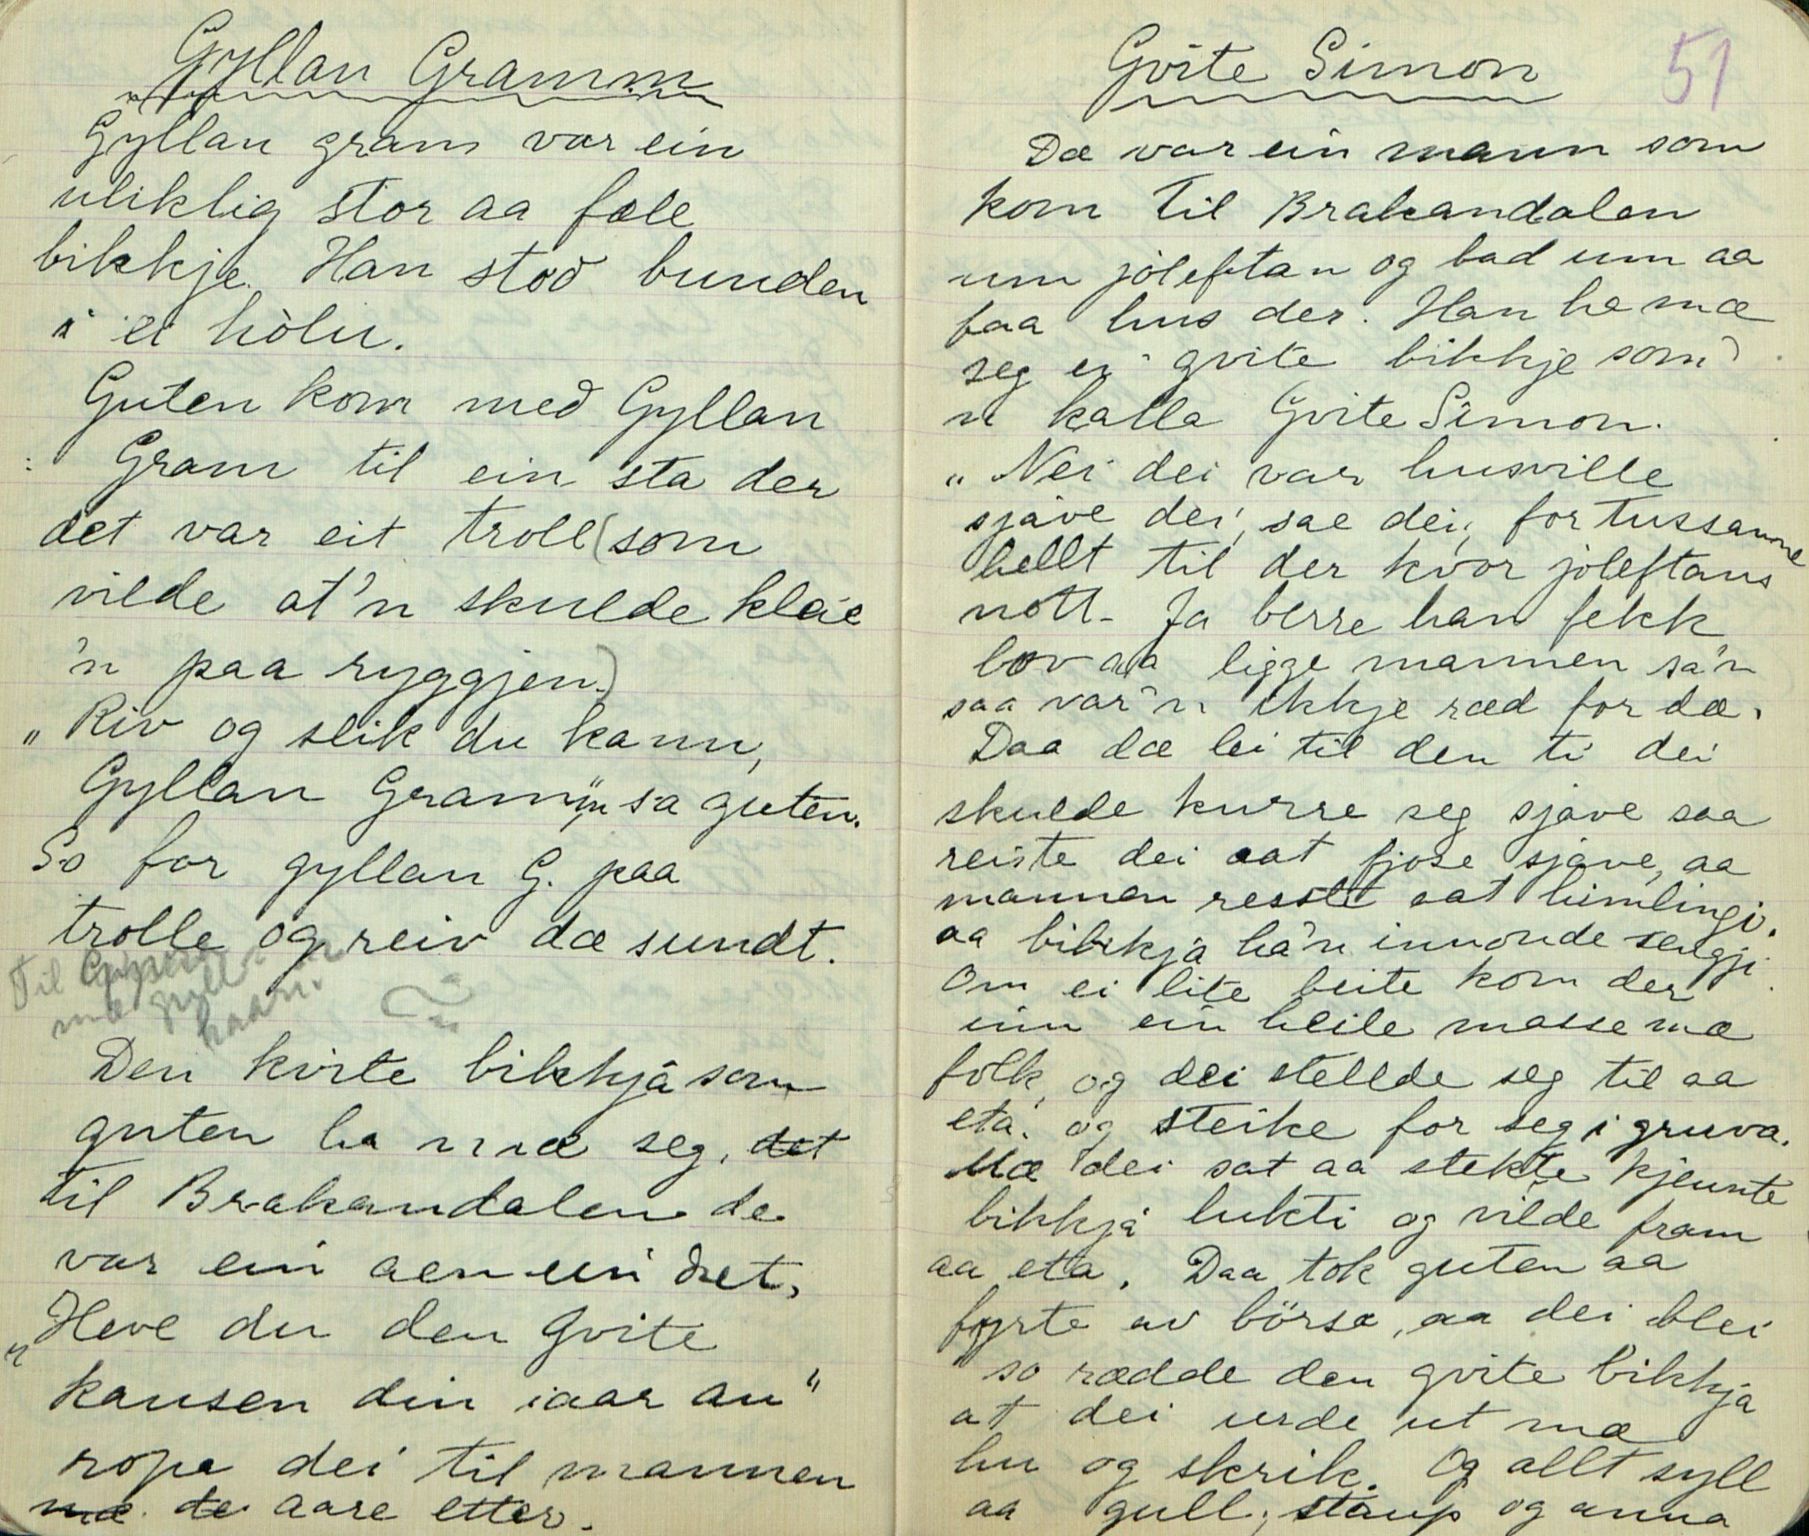 Gyllan Gramm
Gyllan gram var ein
uliklig stor aa fæle
bikkje. Han stod bunden
i ei hòlu.
Guten kom med Gyllan
Gram til ein sta der
det var eit troll (som
vilde at'n skulde klaie
'n paa ryggjen.)
"Riv og slik du kann,
Gyllan Gram", sa guten.
So for gyllan G. paa
trolle og reiv dæ sundt.
Til
mæ gyll
haari.
Den kvite bikkjå som
guten ha mæ seg, det
til Brakandalen de
var ein aen ein det,
"Heve du den Gvite
kausen din iaar au"
ropa dei til mannen
mæ de aare etter.
Gvite Simon
51
Dæ var ein mann som
kom til Brakandalen
um jòleftan og bad um aa
faa hus der. Han ha mæ
seg ei gvite bikkje som
n kalla Gvite Simon.
"Nei dei var husville
sjave dei, sae dei, for tussanne
hellt til der kvor jòleftans
nott. Ja berre han fekk
lov aa ligge mannen sa'n
saa var'n ikkje ræd for dæ.
Daa dæ lei til den ti dei
skulde kurre seg sjave saa
reiste dei aat fjose sjave, aa
mannen resste aat himlingi,
aa bikkja ha'n innonde sengji.
Om ei lite beite kom der
inn ein heile masse mæ
folk, og dei stellde seg til aa
eta og steike for seg i gruva.
Mæ dei sat aa stekte kjennte
bikkjå lukti og vilde fram
aa eta. Daa tok guten aa
fyrte av börsa, aa dei blei
so rædde den gvite bikkja
at dei urde ut mæ
hu og skrik. Og allt syll
aa gull, staup og anna